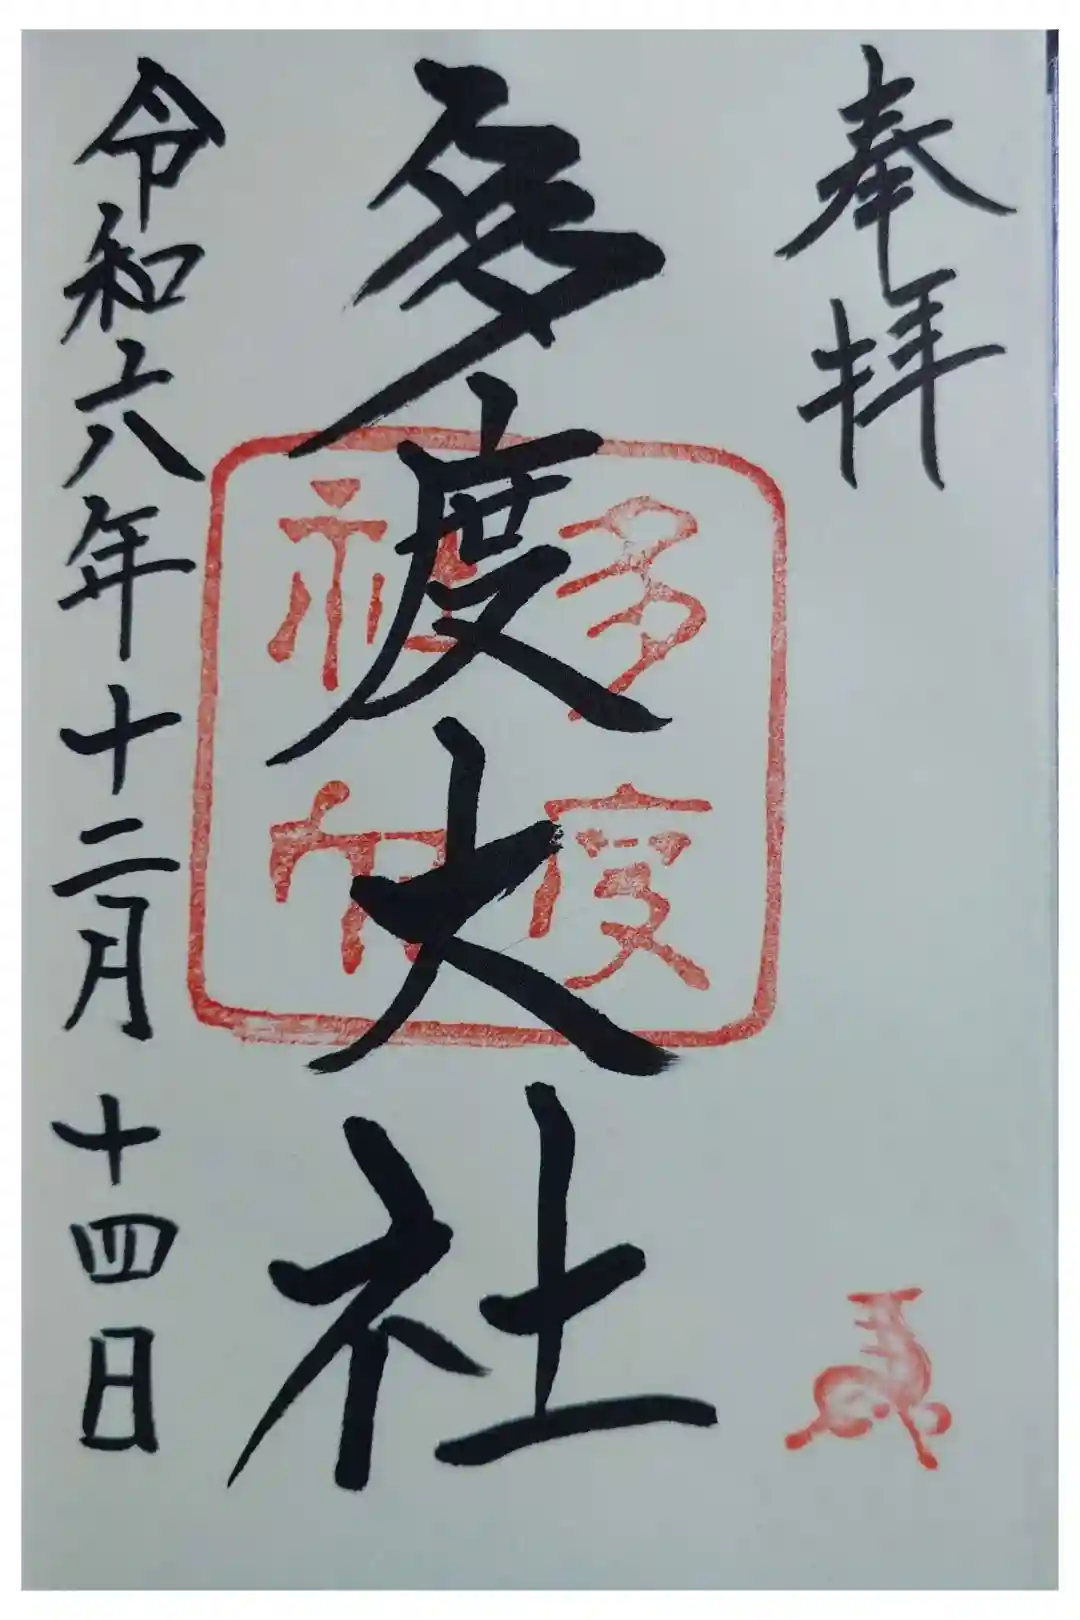 奉拝
多度大社
多度
社印
令和六年十二月十四日